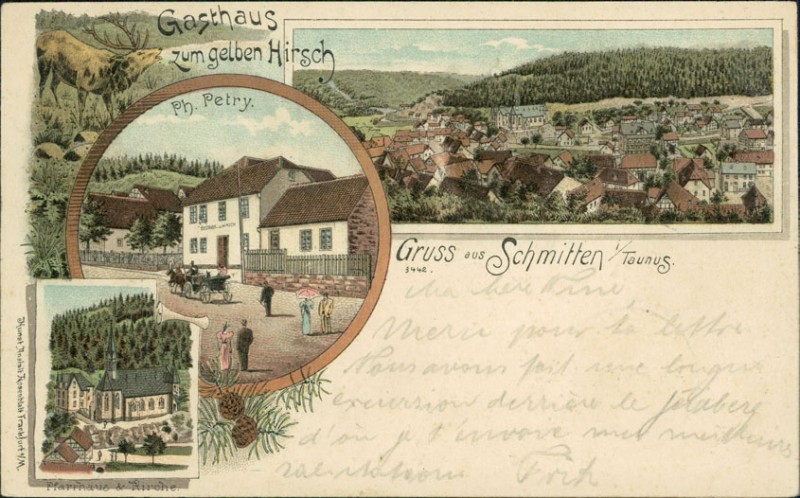 Gasthaus
zum gelben Hirsch
Ph. Petry.
Gruss aus Schmitten i/Taunus.
3442.
Ma chère
Merci pour ta lettre
Nous avons fait une longue
excursion derrière le Feldberg
d'où je t'envoie mes meilleurs
salutations
Pfarrhaus & Kirche.
Kunst Anstalt Frankfurt a/M.